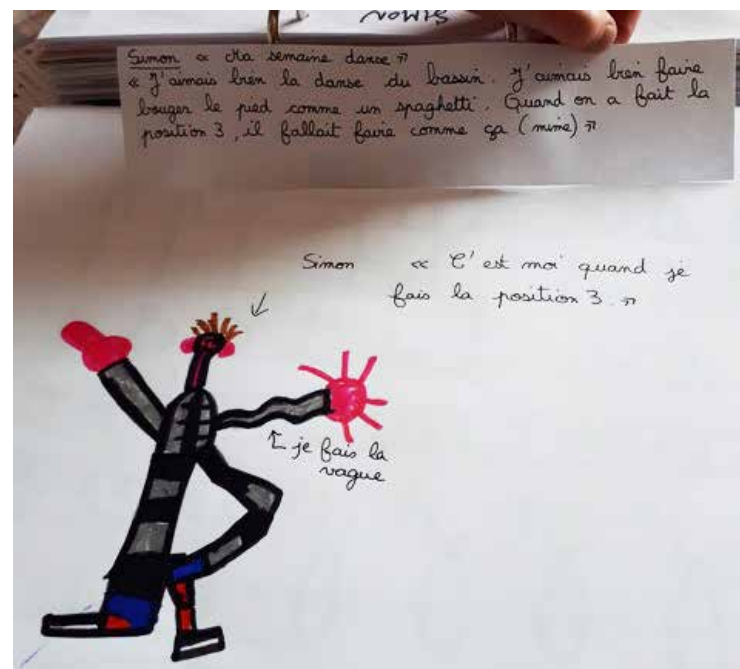 SIMON
Simon « Ma semaine danse »
« J'aimais bien la danse du bassin. J'aimais bien faire
bouger le pied comme un spaghetti. Quand on a fait la
position 3, il fallait faire comme ça (mime) »
Simon « C'est moi quand je
fais la position 3. »
je fais la
vague